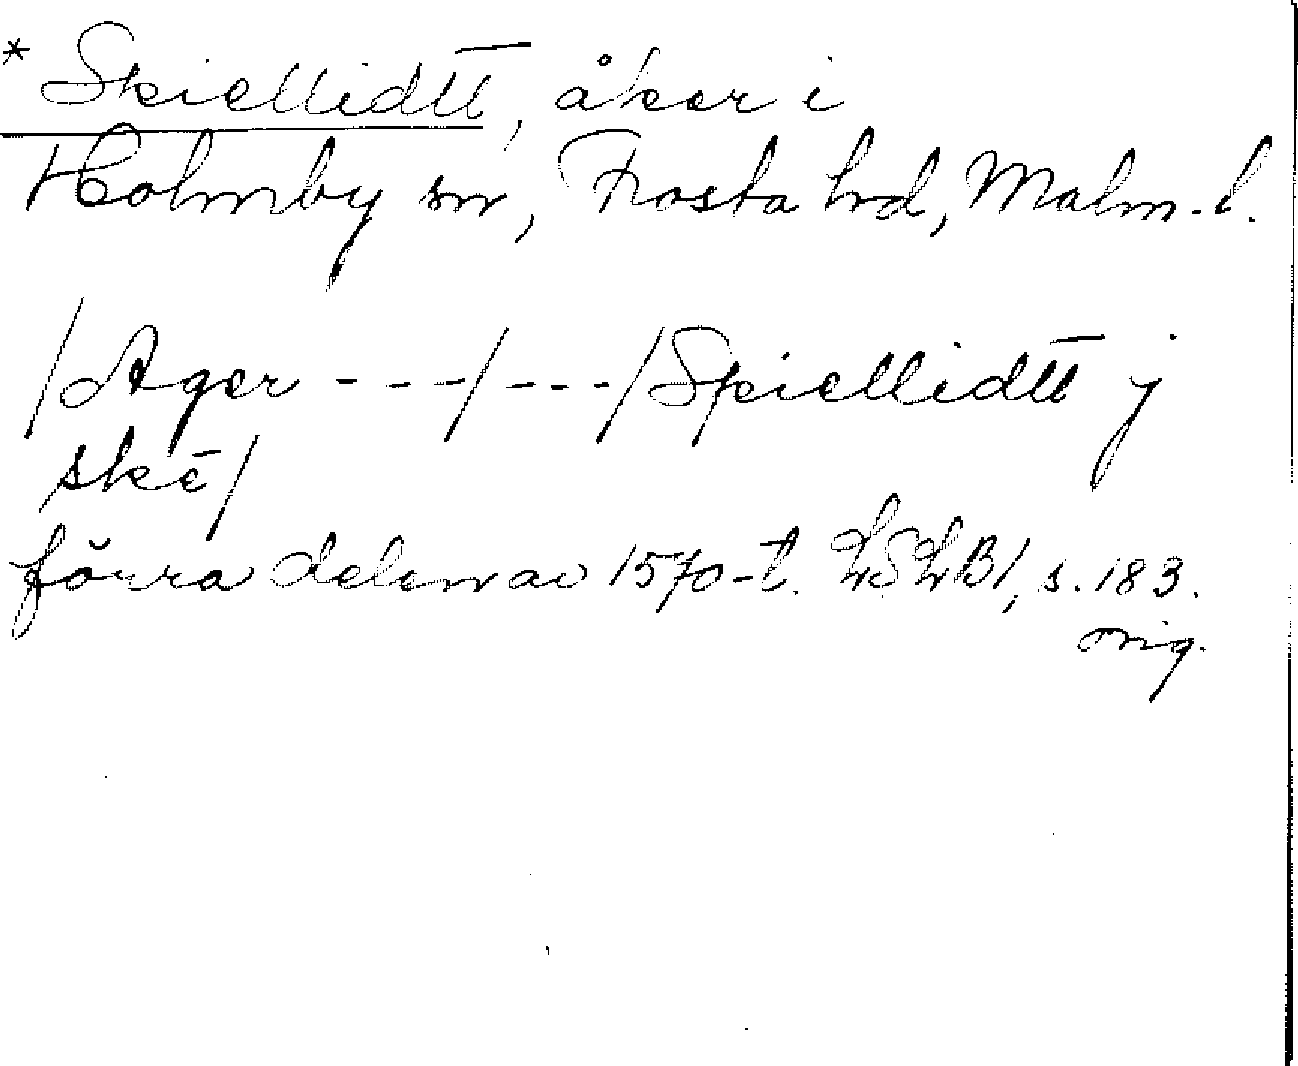 * Skiellidtt, åker i
Holmby sn, Frosta hrd, Malm. l.
/Ager - - -/ - - -/ Spiellidtt j
ske/
förra delen av 1570-t. LSLB1, s. 183.
orig.